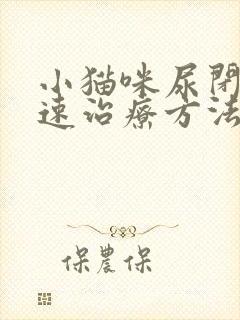 小猫咪尿閉
速治療方法
保農保